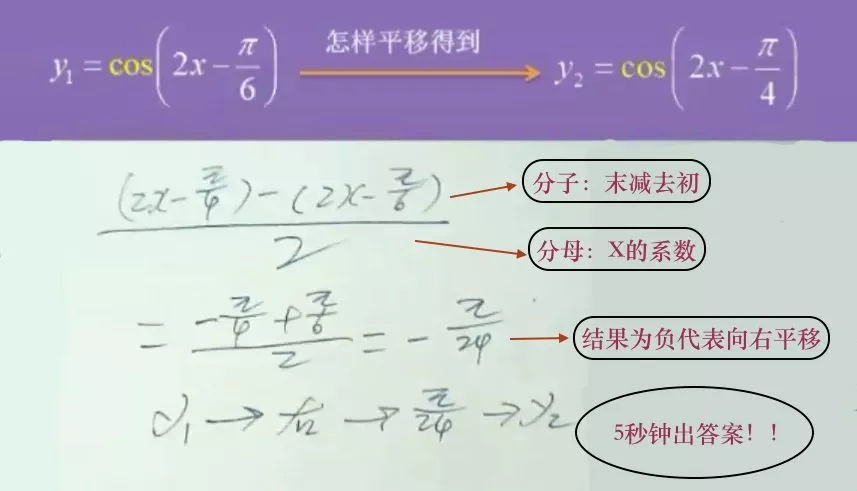 怎样平移得到
y₁ = cos(2x − π/6) → y₂ = cos(2x − π/4)
(2x − π/4) − (2x − π/6)
分子：末减去初
2
分母：X的系数
= (−π/4 + π/6)/2 = − π/24
结果为负代表向右平移
y₁ → 右 → π/24 → y₂
5秒钟出答案！！